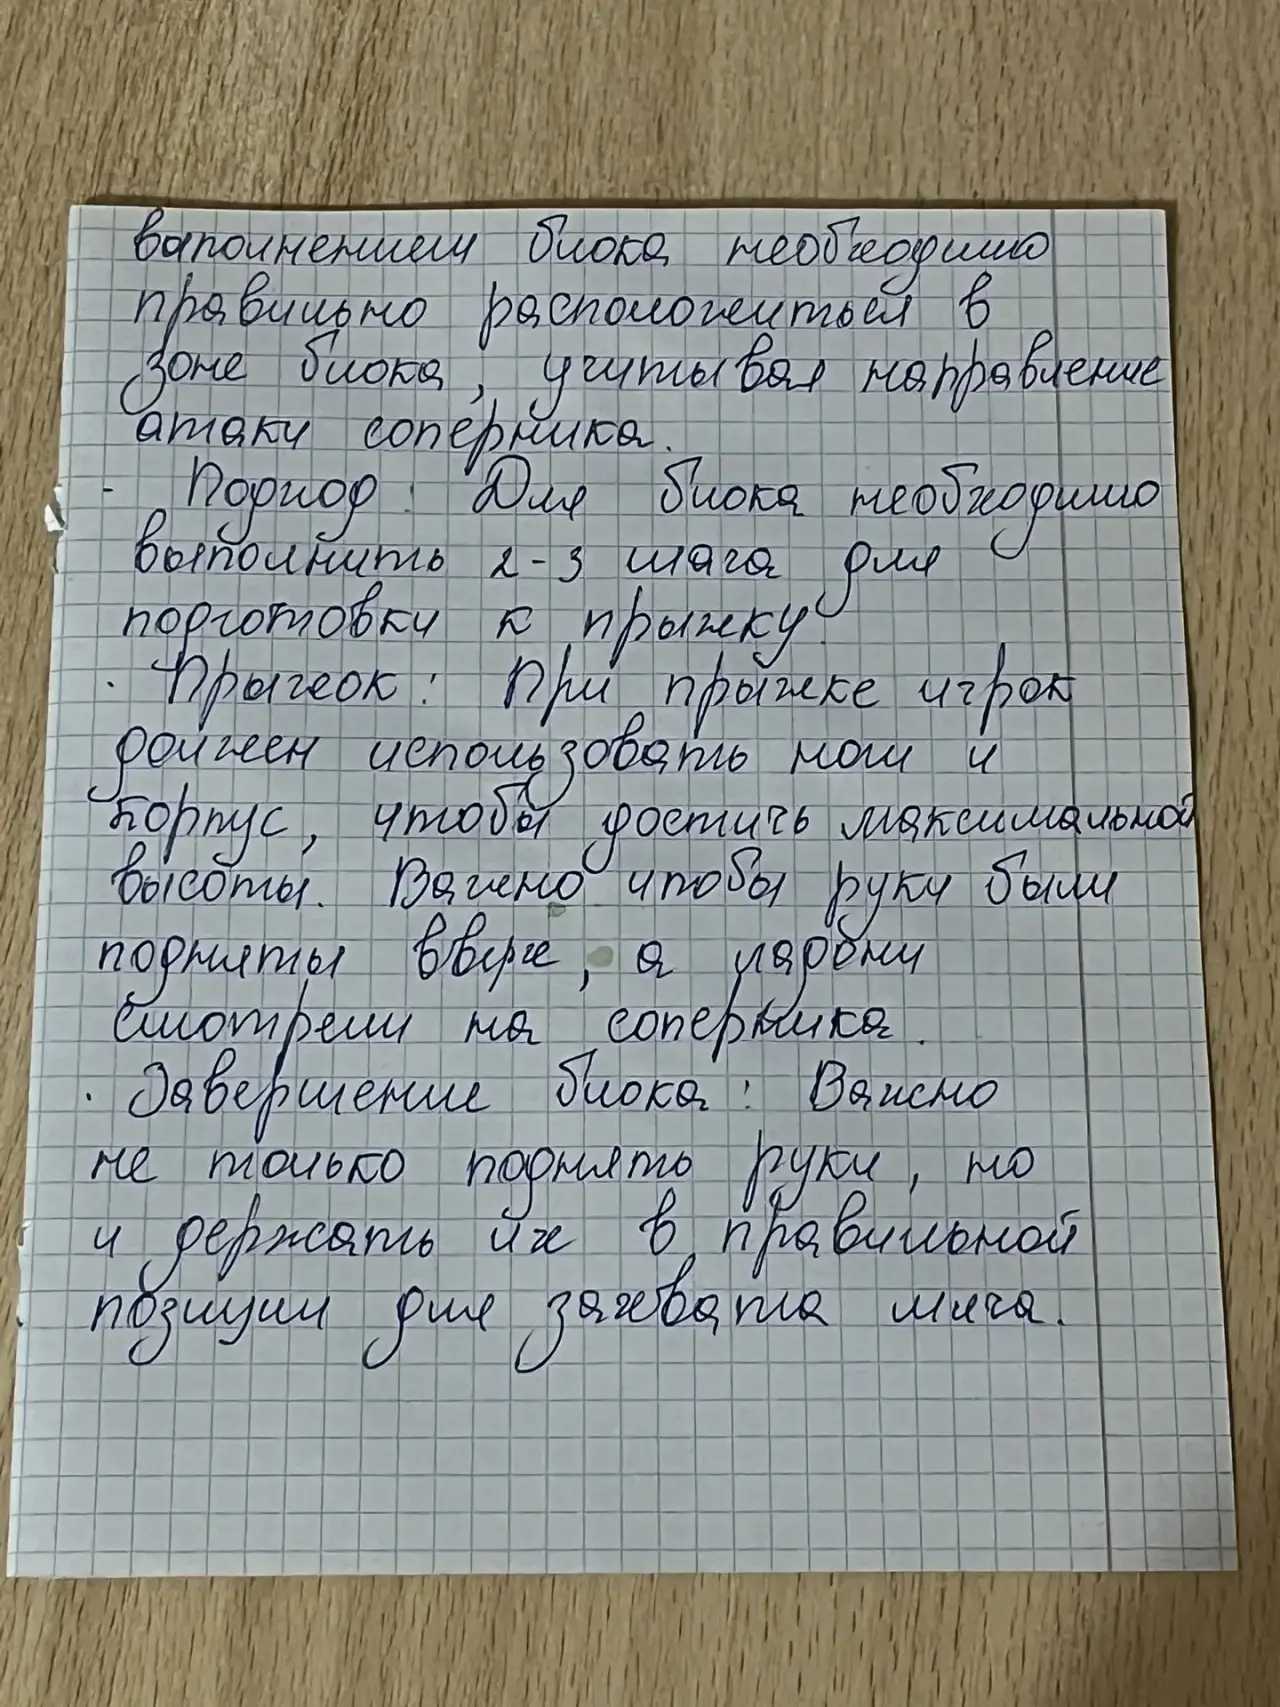 выполнением блока необходимо
правильно расположиться в
зоне блока, учитывая направление
атаки соперника.
- Подход: Для блока необходимо
выполнить 2-3 шага для
подготовки к прыжку.
· Прыжок: При прыжке игрок
должен использовать ноги и
корпус, чтобы достичь максимальной
высоты. Важно чтобы руки были
подняты вверх, а ладони
смотрели на соперника.
· Завершение блока: Важно
не только поднять руки, но
и держать их в правильной
позиции для захвата мяча.